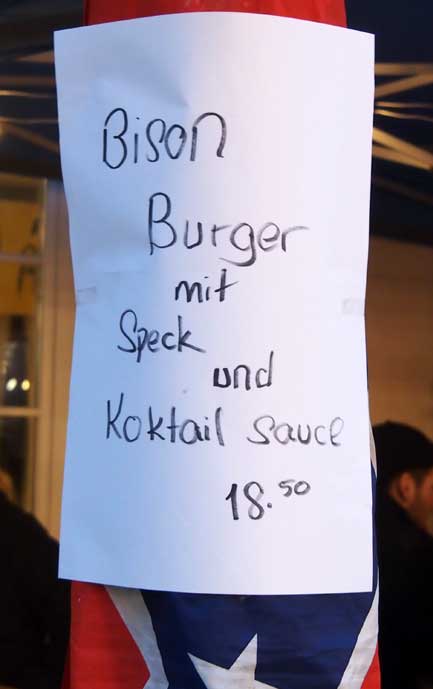 Bison
Burger
mit
Speck
und
Koktail sauce
18.50